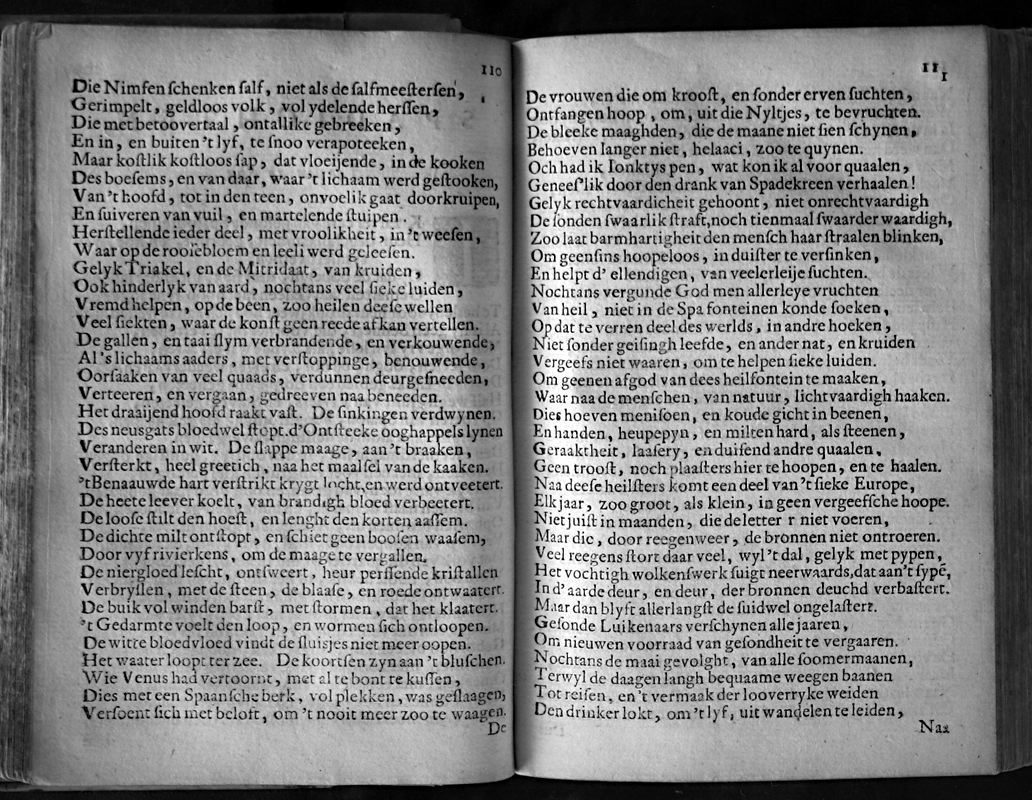 110
Die Nimfen ſchenken ſalf, niet als de ſalfmeeſterſen,
Gerimpelt, geldloos volk, vol ydelende herſſen,
Die met betoovertaal, ontallike gebreeken,
En in, en buiten 't lyf, te ſnoo verapoteeken,
Maar koſtlik koſtloos ſap, dat vloeijende, in de kooken
Des boeſems, en van daar, waar 't lichaam werd geſtooken,
Van 't hoofd, tot in den teen, onvoelik gaat doorkruipen,
En ſuiveren van vuil, en martelende ſtuipen.
Herſtellende ieder deel, met vroolikheit, in 't weeſen,
Waar op de rooſebloem en leeli werd geleeſen.
Gelyk Triakel, en de Mitridaat, van kruiden,
Ook hinderlyk van aard, nochtans veel ſieke luiden,
Vremd helpen, op de been, zoo heilen deeſe wellen
Veel ſiekten, waar de konſt geen reede af kan vertellen.
De gallen, en taai ſlym verbrandende, en verkouwende,
Al 's lichaams aaders, met verſtoppinge, benouwende,
Oorſaaken van veel quaads, verdunnen deurgeſneeden,
Verteeren, en vergaan, gedreeven naa beneeden.
Het draaijend hoofd raakt vaſt. De ſinkingen verdwynen.
Des neusgats bloedwel ſtopt. d'Ontſteeke ooghappels lynen
Veranderen in wit. De ſlappe maage, aan 't braaken,
Verſterkt, heel greetich, naa het maalſel van de kaaken.
't Benaauwde hart verſtrikt krygt locht, en werd ontveetert.
De heete leever koelt, van brandigh bloed verbeetert.
De looſe ſtilt den hoeſt, en lenght den korten aaſſem.
De dichte milt ontſtopt, en ſchiet geen booſen waaſem,
Door vyf rivierkens, om de maage te vergallen.
De niergloed leſcht, ontſweert, heur perſſende kriſtallen
Verbryſlen, met de ſteen, de blaaſe, en roede ontwaatert.
De buik vol winden barſt, met ſtormen, dat het klaatert.
't Gedarmte voelt den loop, en wormen ſich ontloopen.
De witte bloedvloed vindt de ſluisjes niet meer oopen.
Het waater loopt ter zee. De koortſen zyn aan 't bluſchen.
Wie Venus had vertoornt, met al te bont te kuſſen,
Dies met een Spaanſche berk, vol plekken, was geſlaagen,
Verſoent ſich met beloft, om 't nooit meer zoo te waagen.
De
111
De vrouwen die om krooſt, en ſonder erven ſuchten,
Ontfangen hoop, om, uit die Nyltjes, te bevruchten.
De bleeke maaghden, die de maane niet ſien ſchynen,
Behoeven langer niet, helaaci, zoo te quynen.
Och had ik Ionktys pen, wat kon ik al voor quaalen,
Geneeſ'lik door den drank van Spadekreen verhaalen!
Gelyk rechtvaardicheit gehoont, niet onrechtvaardigh
De ſonden ſwaarlik ſtraft, noch tienmaal ſwaarder waardigh,
Zoo laat barmhartigheit den menſch haar ſtraalen blinken,
Om geenſins hoopeloos, in duiſter te verſinken,
En helpt d' ellendigen, van veelerleije ſuchten.
Nochtans vergunde God men allerleye vruchten
Van heil, niet in de Spa fonteinen konde ſoeken,
Op dat te verren deel des werlds, in andre hoeken,
Niet ſonder geiſingh leefde, en ander nat, en kruiden
Vergeefs niet waaren, om te helpen ſieke luiden.
Om geenen afgod van dees heilfontein te maaken,
Waar naa de menſchen, van natuur, lichtvaardigh haaken.
Dies hoeven meniſoen, en koude gicht in beenen,
En handen, heupepyn, en milten hard, als ſteenen,
Geraaktheit, laaſery, en duiſend andre quaalen,
Geen trooſt, noch plaaſters hier te hoopen, en te haalen.
Naa deeſe heilſters komt een deel van 't ſieke Europe,
Elk jaar, zoo groot, als klein, in geen vergeefſche hoope.
Niet juiſt in maanden, die de letter r niet voeren,
Maar die, door reegenweer, de bronnen niet ontroeren.
Veel reegens ſtort daar veel, wyl 't dal, gelyk met pypen,
Het vochtigh wolkenſwerk ſuigt neerwaards, dat aan 't ſypē,
In d' aarde deur, en deur, der bronnen deuchd verbaſtert.
Maar dan blyft allerlangſt de ſuidwel ongelaſtert.
Geſonde Luikenaars verſchynen alle jaaren,
Om nieuwen voorraad van geſondheit te vergaaren.
Nochtans de maai gevolght, van alle ſoomermaanen,
Terwyl de daagen langh bequaame weegen baanen
Tot reiſen, en 't vermaak der looverryke weiden
Den drinker lokt, om 't lyf, uit wandelen te leiden,
Naa